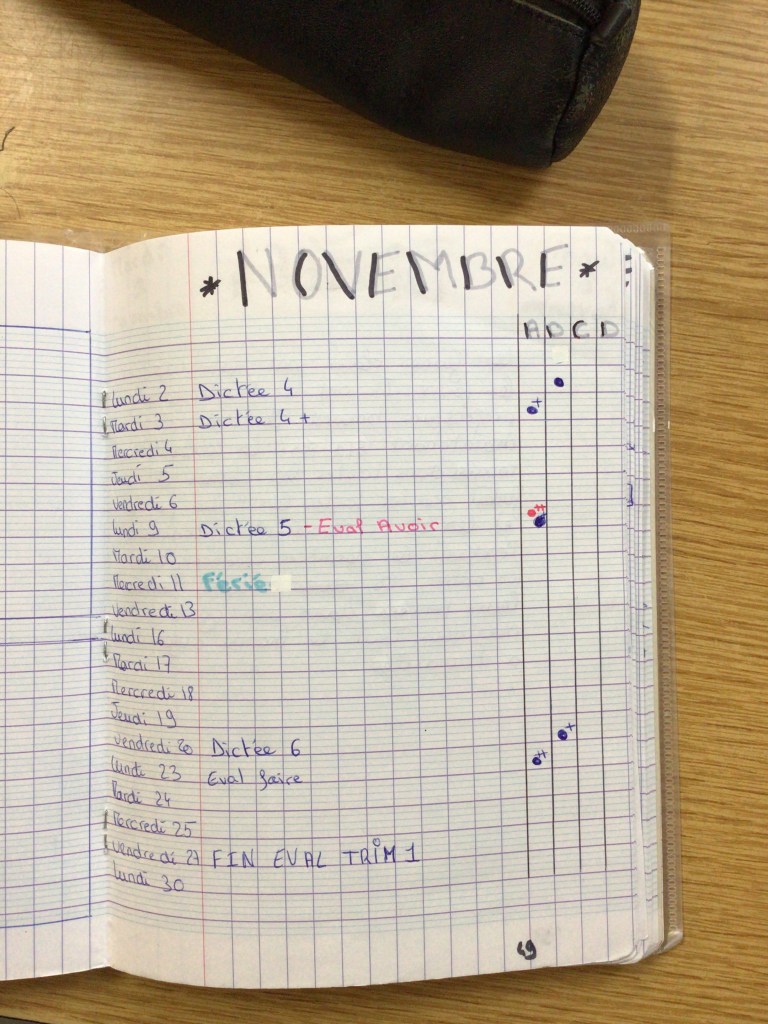 * NOVEMBRE *
A B C D
Lundi 2 Dictée 4
Mardi 3 Dictée 4 + +
Mercredi 4
Jeudi 5
Vendredi 6
Lundi 9 Dictée 5 - Eval Avoir ++
Mardi 10
Mercredi 11 Férié
Vendredi 13
Lundi 16
Mardi 17
Mercredi 18
Jeudi 19
Vendredi 20 Dictée 6 +
Lundi 23 Eval faire ++
Mardi 24
Mercredi 25
Vendredi 27 FIN EVAL TRIM 1
Lundi 30
49